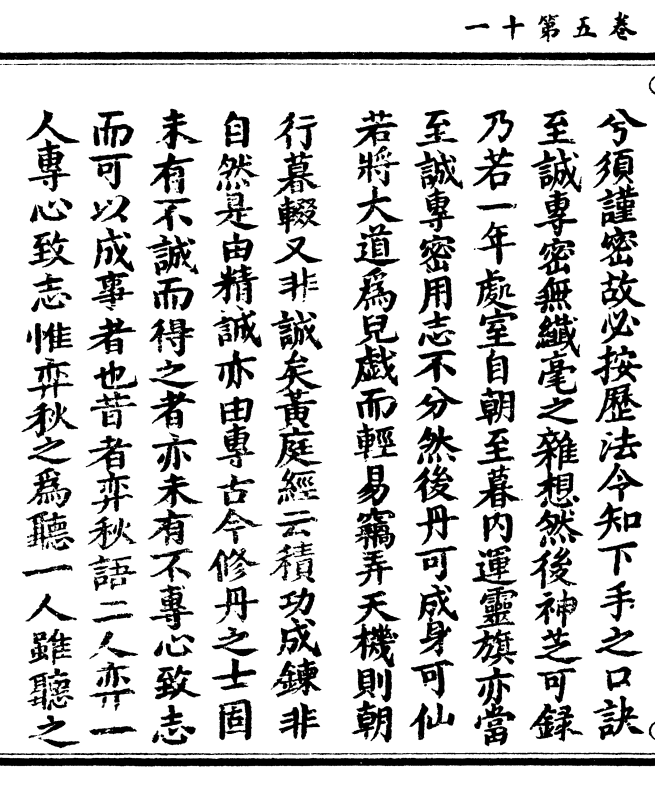 卷五第十一
兮須謹密故必按歷法今知下手之口訣
至誠專密無纖毫之雜想然後神芝可録
乃若一年處室自朝至暮内運靈旗亦當
至誠專密用志不分然後丹可成身可仙
若將大道為兒戲而輕易竊弄天機則朝
行暮輟又非誠矣黃庭經云積功成鍊非
自然是由精誠亦由專古今修丹之士固
未有不誠而得之者亦未有不專心致志
而可以成事者也昔者弈秋語二人弈一
人專心致志惟弈秋之為聽一人雖聽之